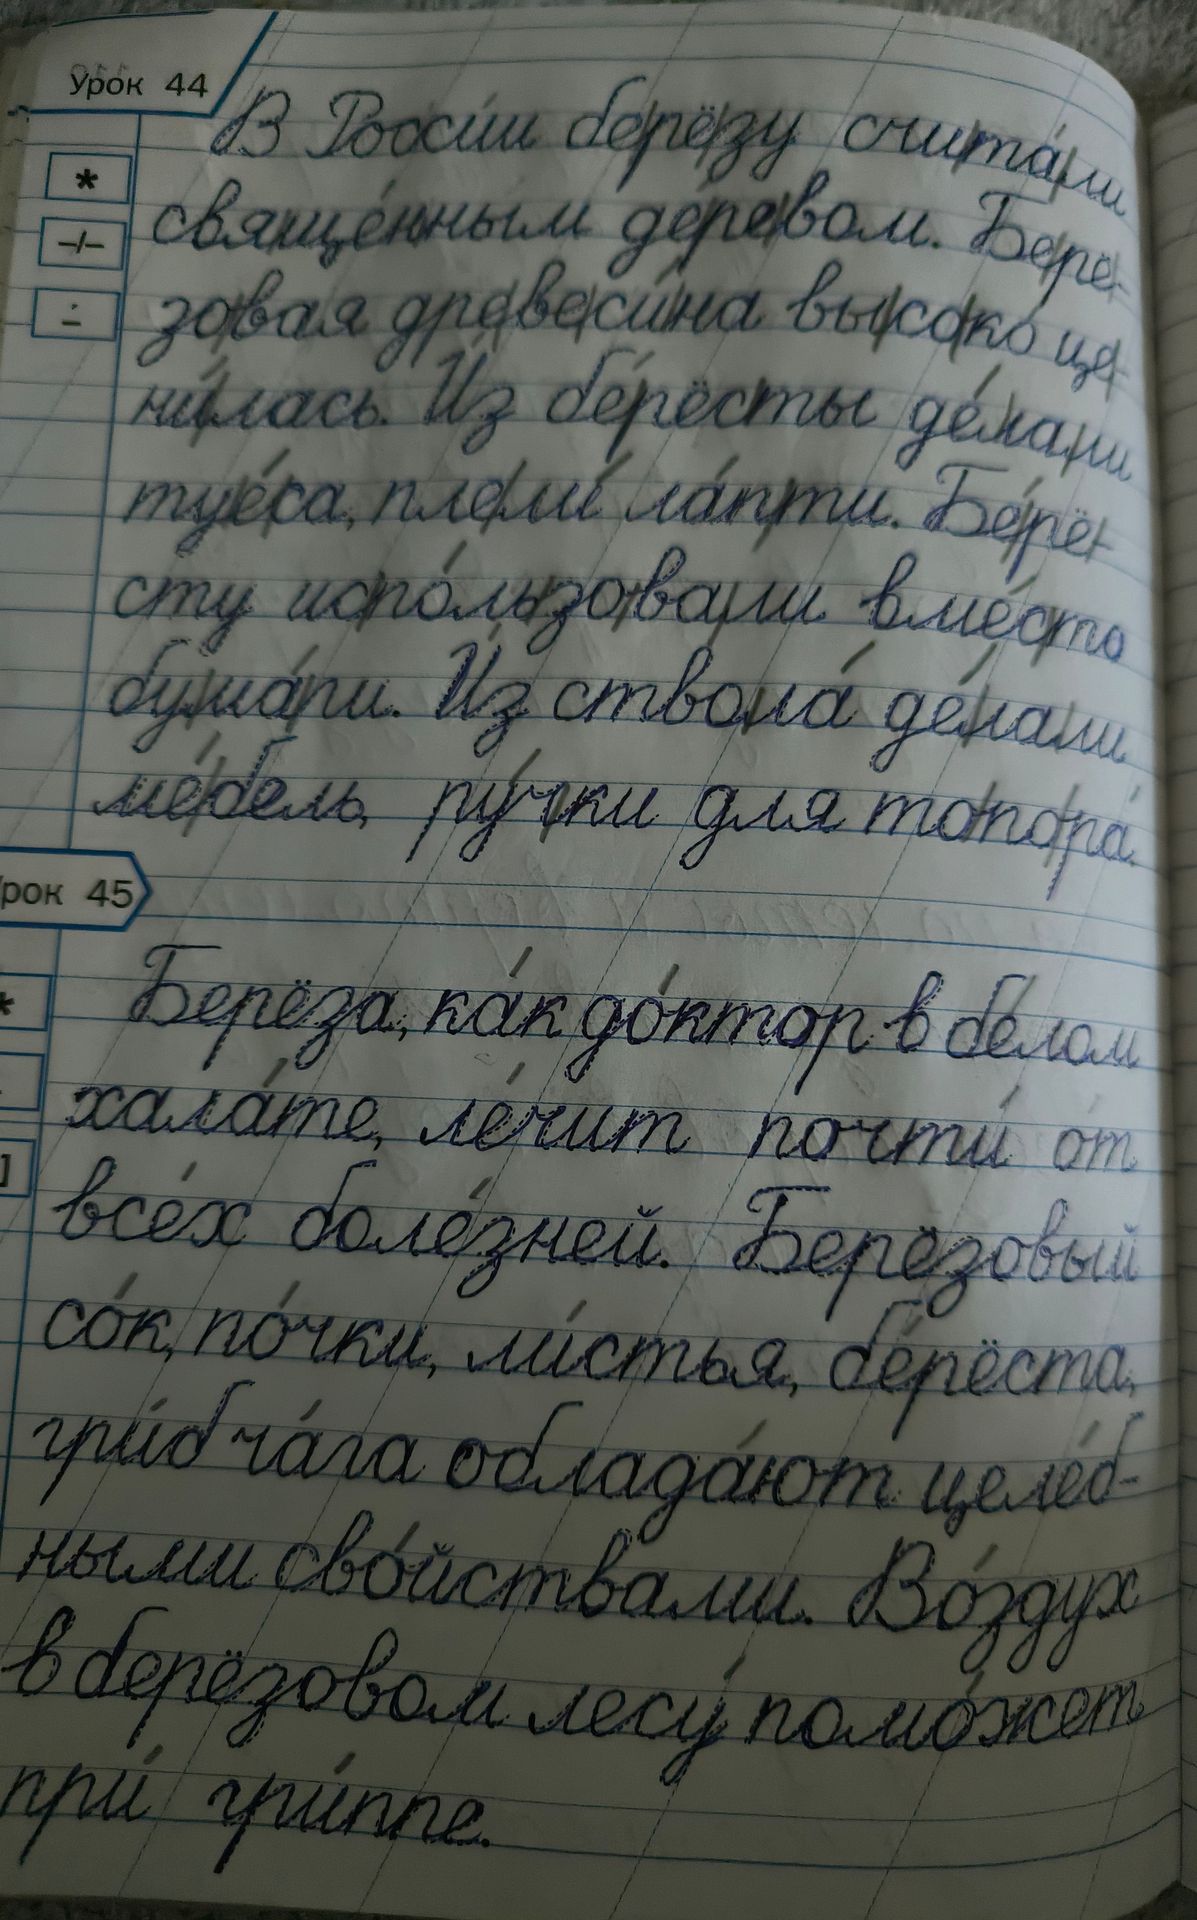 Урок 44
В Росси́и берёзу счита́ли
свяще́нным де́ревом. Берё-
зовая древеси́на высоко́ це-
ни́лась. И́з бе́рёсты де́лали
туе́са, плели́ ла́пти. Бе́рё-
сту испо́льзовали вме́сто
бума́ги. И́з ствола́ де́лали
ме́бель, ру́чки для топора́.
Урок 45
Берёза, ка́к до́ктор в бе́лом
хала́те, ле́чит почти́ о́т
все́х боле́зней. Берёзовый
со́к, по́чки, ли́стья, бе́рёста,
гри́б ча́га облада́ют целе́б-
ными сво́йствами. Во́здух
в берёзовом лесу́ помо́жет
при́ гри́ппе.